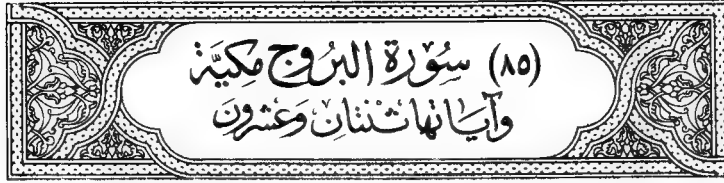 (٨٥) سُوْرَة البُرُوْج مَكِيَّة
وَآيَاتُهَا ثِنْتَانِ وَعِشْرُونَ